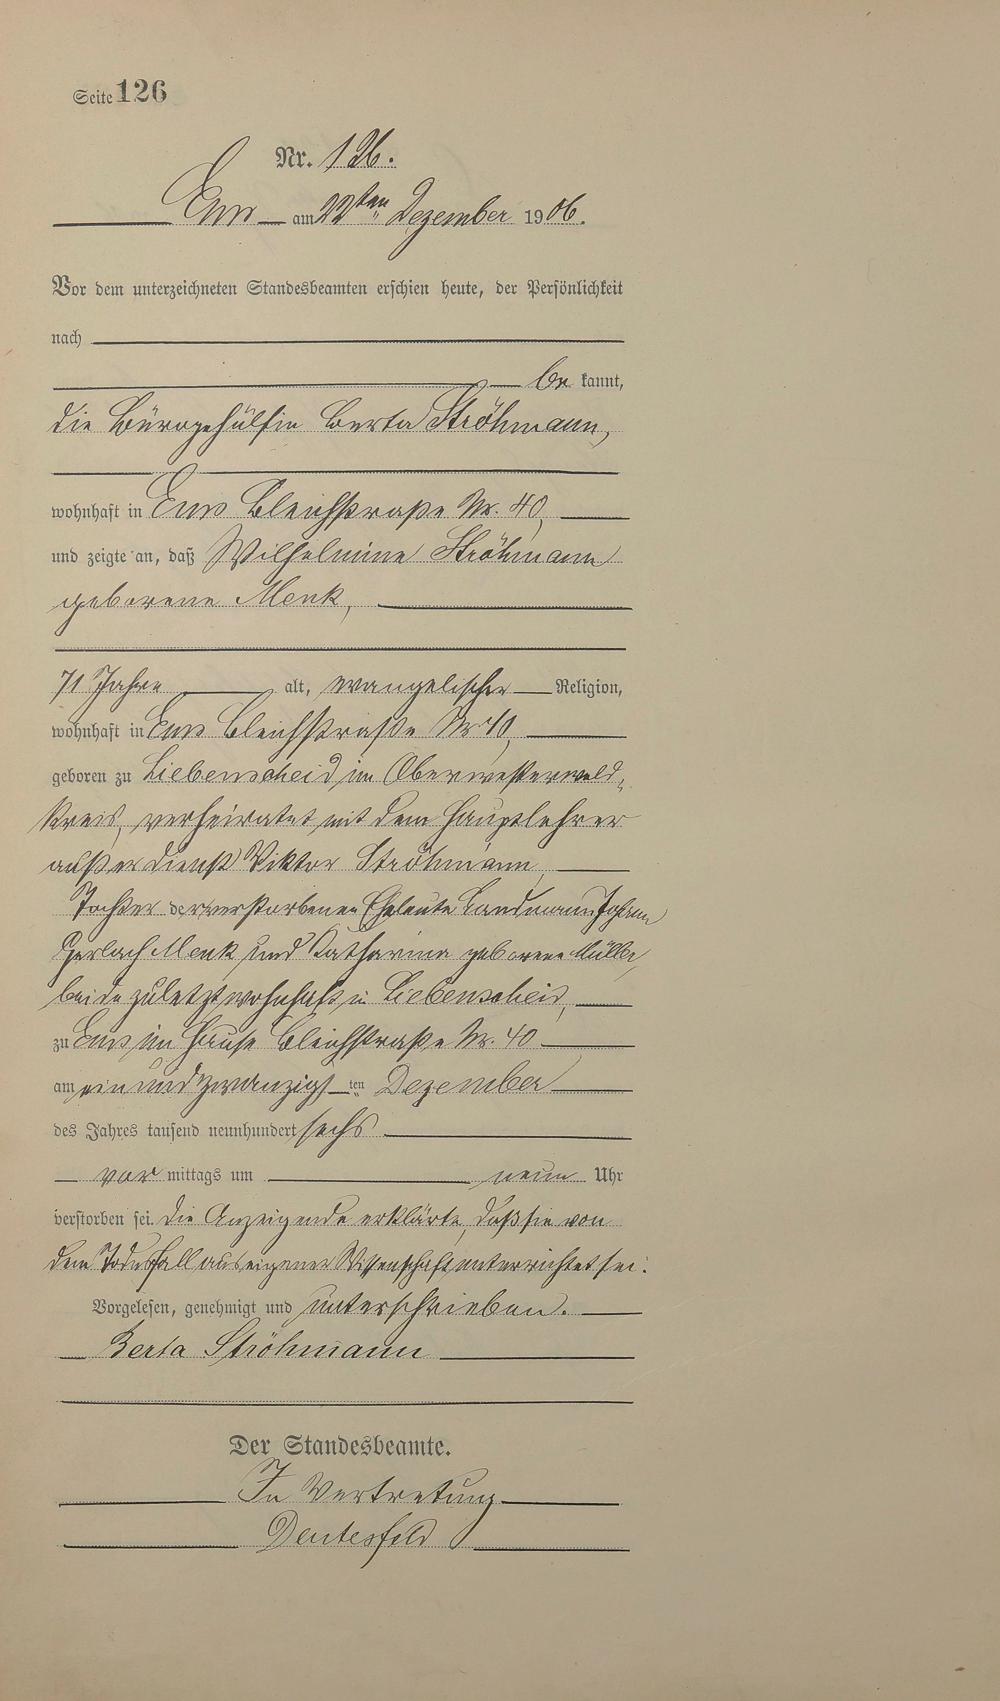 Seite 126
Nr. 126.
Ems am 22ten Dezember 1906.
Vor dem unterzeichneten Standesbeamten erschien heute, der Persönlichkeit
nach
be kannt,
die Bürogehülfin Berta Ströhmann,
wohnhaft in Ems Bleichstraße Nr. 40,
und zeigte an, daß Wilhelmine Ströhmann
geborene Menk,
71 Jahre alt, evangelischer Religion,
wohnhaft in Ems Bleichstraße Nr. 40,
geboren zu Liebenscheid im Oberwesterwald-
kreis, verheiratet mit dem Hauptlehrer
außer Dienst Viktor Ströhmann,
Tochter der verstorbenen Eheleute Landmann Johann
Gerlach Menk und Katharina geborene Müller,
beide zuletzt wohnhaft in Liebenscheid,
zu Ems im Hause Bleichstraße Nr. 40
am ein und zwanzigsten Dezember
des Jahres tausend neunhundert sechs
vor mittags um neun Uhr
verstorben sei. Die Anzeigende erklärte, daß sie von
dem Todesfall aus eigener Wissenschaft unterrichtet sei.
Vorgelesen, genehmigt und unterschrieben.
Berta Ströhmann
Der Standesbeamte.
In Vertretung